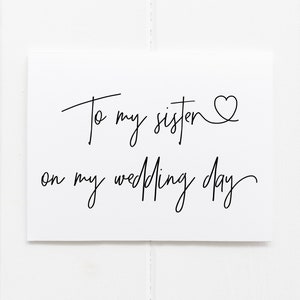 To my sister
on my wedding day